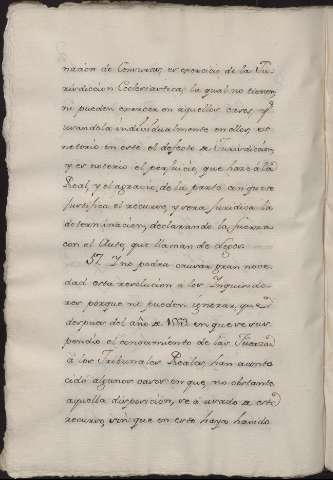 nacion de Censuras, es exercicio de la Ju-
risdiccion Ecclesiastica; la qual no tienen,
ni pueden exercer en aquellos casos, y
usandola individualmente en ellos, es
notorio en este el defecto de Jurisdiccion,
y es notorio el perjuicio, que hace á la
Real, y el agravio de la parte, con que se
justifica el recurso, y sera juridica la
determinacion, declarando la fuerza
con el Auto, que llaman de legos.
57. Y no podra causar gran nove-
dad esta resolucion a los Inquisido-
res, porque no pueden ignorar, que
despues del año de 1553 en que se sus-
pendió el conocimiento de las Fuerzas
a los Tribunales Reales, han aconte-
cido algunos casos en que no obstante
aquella disposicion, se á usado de este
recurso, sin que en esto haya havido